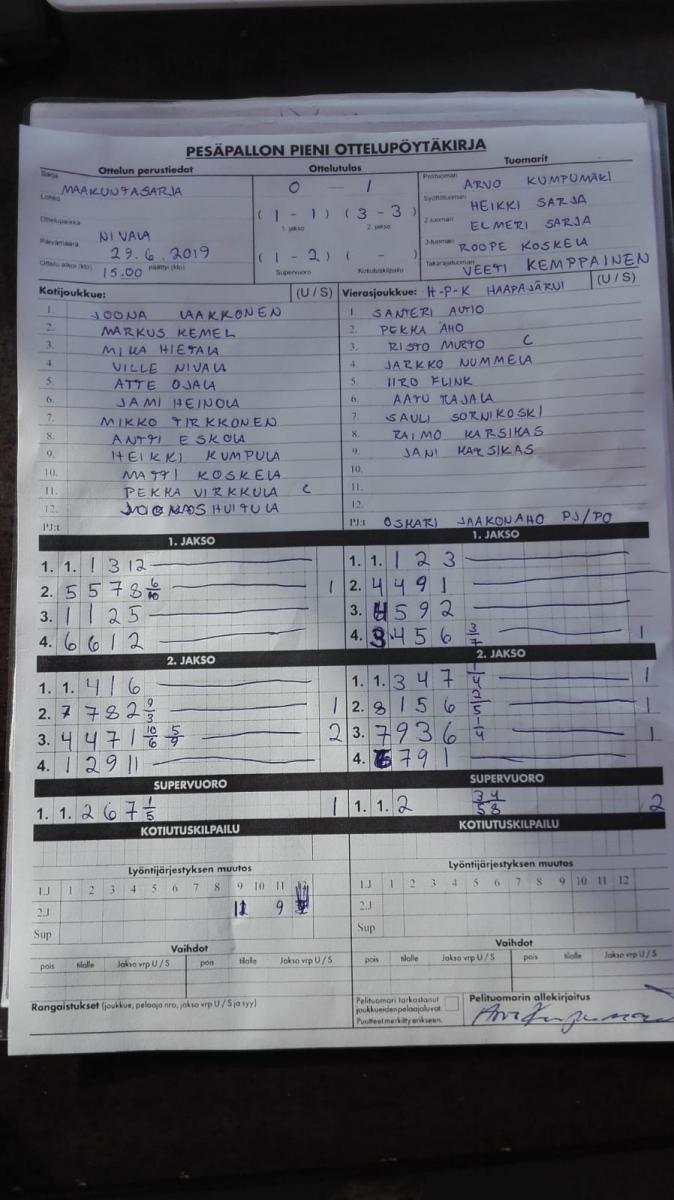 PESÄPALLON PIENI OTTELUPÖYTÄKIRJA
Sarja Ottelun perustiedot Ottelutulos Tuomarit
MAAKUNTASARJA 0 – 1 Pelituomari ARVO KUMPUMÄKI
Lohko
( 1 - 1 ) ( 3 - 3 ) Syöttötuomari HEIKKI SARJA
Ottelupaikka 1. jakso 2. jakso 2-tuomari ELMERI SARJA
NIVALA
Päivämäärä 29.6.2019 ( 1 - 2 ) ( - ) 3-tuomari ROOPE KOSKELA
Ottelu alkoi (klo) 15.00 päättyi (klo) Supervuoro Kotiutuskilpailu Takarajatuomari VEETI KEMPPAINEN
Kotijoukkue: (U / S) Vierasjoukkue: H-P-K HAAPAJÄRVI (U / S)
1. JOONA LAAKKONEN 1 SANTERI AUTIO
2. MARKUS KEMEL 2. PEKKA AHO
3. MIKA HIETALA 3. RISTO MURTO C
4. VILLE NIVALA 4. JARKKO NUMMELA
5. ATTE OJALA 5. IIRO FLINK
6. JAMI HEINOLA 6. AATU RAJALA
7. MIKKO TIRKKONEN 7. SAULI SORNIKOSKI
8. ANTTI ESKOLA 8. RAIMO KARSIKAS
9. HEIKKI KUMPULA 9. JANI KARSIKAS
10. MATTI KOSKELA 10.
11. PEKKA VIRKKULA C 11.
12. HUITULA 12.
PJ:t PJ:t OSKARI JAAKONAHO PJ/PO
1. JAKSO 1. JAKSO
1. 1. 1 3 12 1. 1. 1 2 3
2. 5 5 7 8 6/10 1 2. 4 4 9 1
3. 1 1 2 5 3. 4 5 9 2
4. 6 6 1 2 4. 3 4 5 6 3/7 1
2. JAKSO 2. JAKSO
1. 1. 4 1 6 1. 1. 3 4 7 1/4 1
2. 7 7 8 2 9/3 1 2. 8 1 5 6 2/5 1
3. 4 4 7 1 10/6 5/9 2 3. 7 9 3 6 1/4 1
4. 1 2 9 11 4. 6 7 9 1
SUPERVUORO SUPERVUORO
1. 1. 2 6 7 1/5 1 1. 1. 2 3/5 4/8 2
KOTIUTUSKILPAILU KOTIUTUSKILPAILU
Lyöntijärjestyksen muutos Lyöntijärjestyksen muutos
1.J 1 2 3 4 5 6 7 8 9 10 11 1.J 1 2 3 4 5 6 7 8 9 10 11 12
2.J 11 9 2.J
Sup Sup
Vaihdot Vaihdot
pois tilalle Jakso vrp U / S pois tilalle Jakso vrp U / S pois tilalle Jakso vrp U / S pois tilalle Jakso vrp U / S
Rangaistukset (joukkue, pelaaja nro, jakso vrp U / S ja syy) Pelituomari tarkastanut Pelituomarin allekirjoitus
joukkueiden pelaajaluvat.
Puutteet merkitty erikseen.